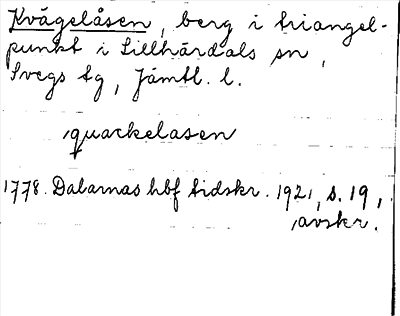 Kvågelåsen, berg i triangel-
punkt i Lillhärdals sn,
Svegs tg, Jämtl. l.
quackelasen
1778. Dalarnas hbf tidskr. 1921, s. 19,
avskr.